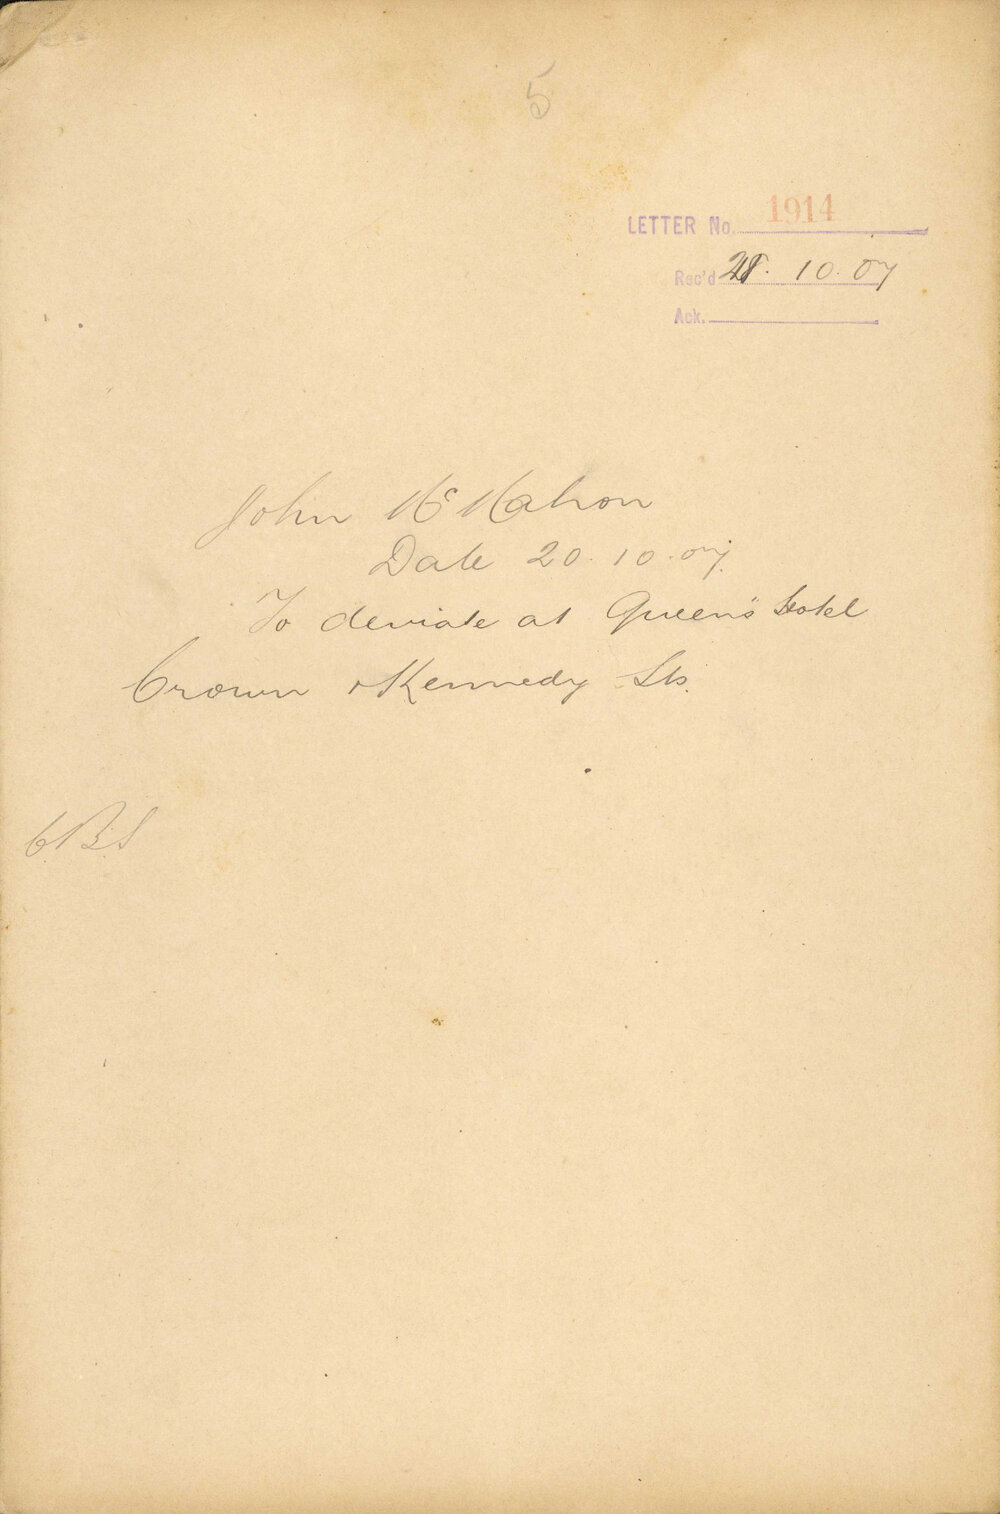 5
LETTER No. 1914
Rec'd 28. 10. 07
Ack.
John McMahon
Date 20. 10. 07.
To deviate at Queen's Hotel
Crown & Kennedy Sts.